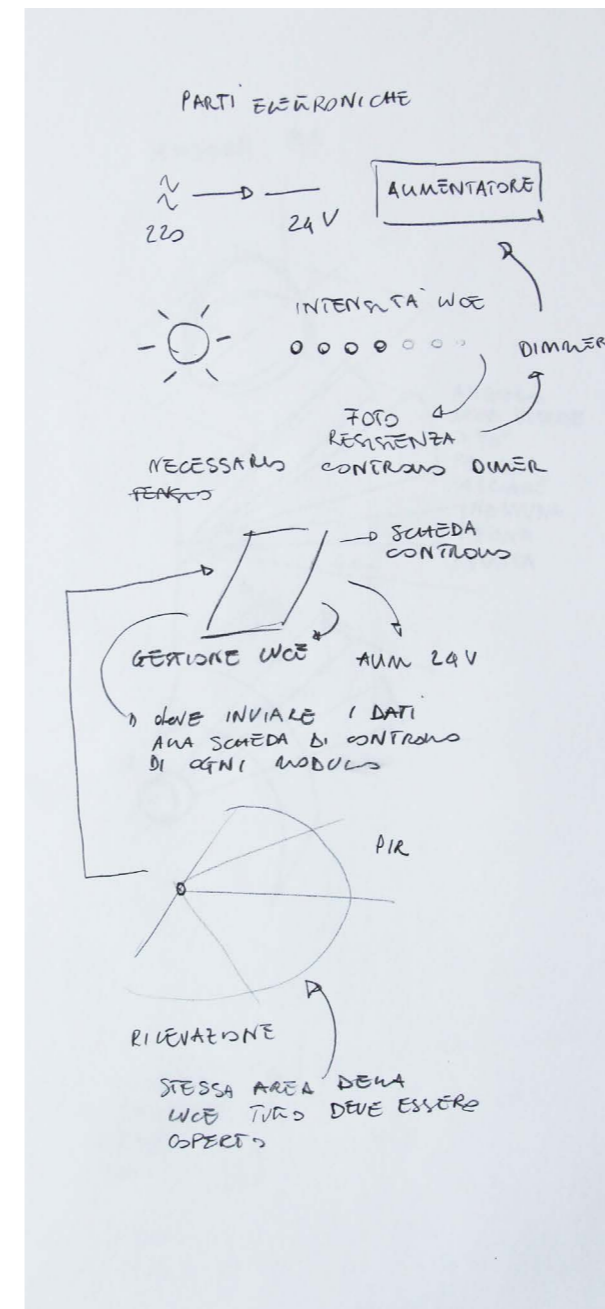 PARTI ELETTRONICHE
220
24 V
ALIMENTATORE
INTENSITÀ LUCE
DIMMER
FOTO
RESISTENZA
NECESSARIO CONTROLLO DIMER
SCHEDA
CONTROLLO
GESTIONE LUCE
ALIM 24 V
DEVE INVIARE I DATI
ALLA SCHEDA DI CONTROLLO
DI OGNI MODULO
PIR
RILEVAZIONE
STESSA AREA DELLA
LUCE TUTTO DEVE ESSERE
COPERTO